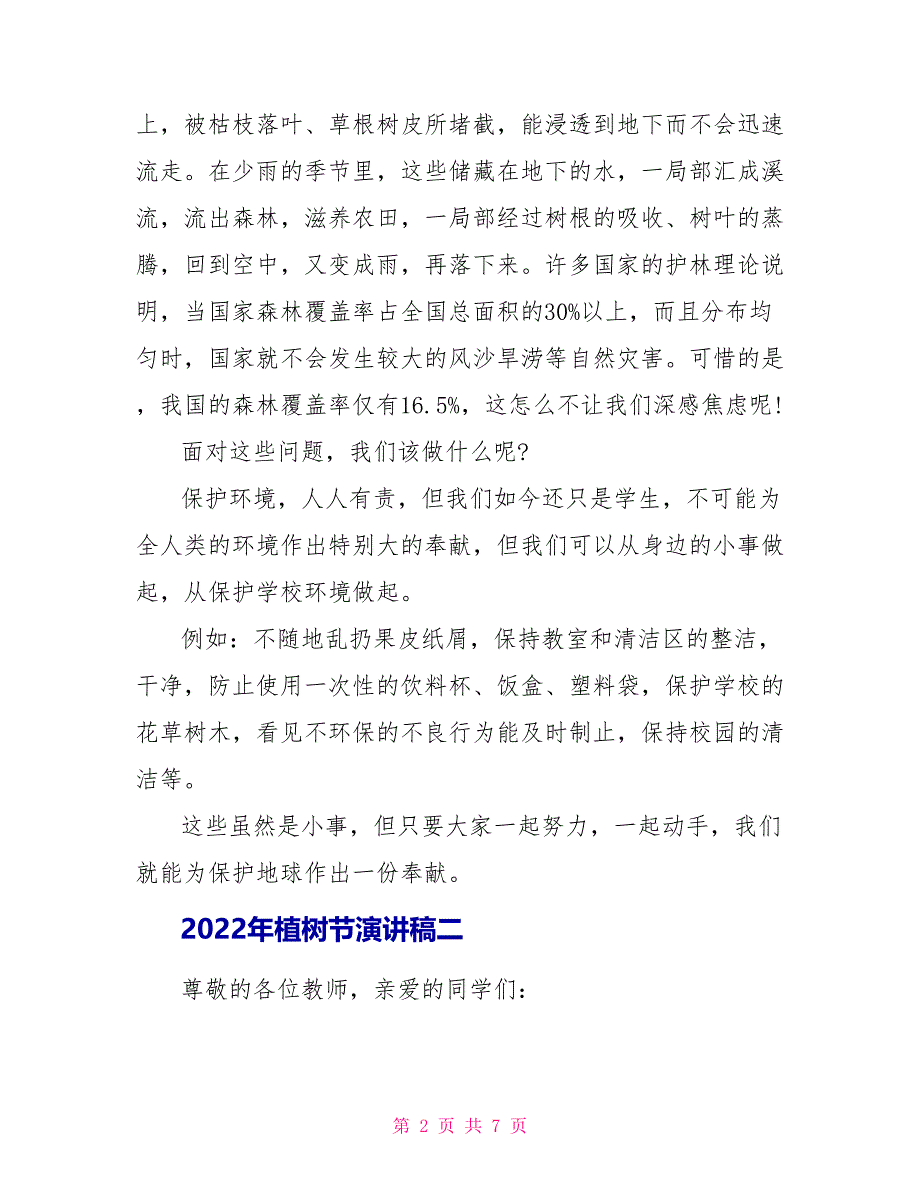 上，被枯枝落叶、草根树皮所堵截，能浸透到地下而不会迅速
流走。在少雨的季节里，这些储藏在地下的水，一局部汇成溪
流，流出森林，滋养农田，一局部经过树根的吸收、树叶的蒸
腾，回到空中，又变成雨，再落下来。许多国家的护林理论说
明，当国家森林覆盖率占全国总面积的30%以上，而且分布均
匀时，国家就不会发生较大的风沙旱涝等自然灾害。可惜的是
，我国的森林覆盖率仅有16.5%，这怎么不让我们深感焦虑呢!
面对这些问题，我们该做什么呢?
保护环境，人人有责，但我们如今还只是学生，不可能为
全人类的环境作出特别大的奉献，但我们可以从身边的小事做
起，从保护学校环境做起。
例如：不随地乱扔果皮纸屑，保持教室和清洁区的整洁，
干净，防止使用一次性的饮料杯、饭盒、塑料袋，保护学校的
花草树木，看见不环保的不良行为能及时制止，保持校园的清
洁等。
这些虽然是小事，但只要大家一起努力，一起动手，我们
就能为保护地球作出一份奉献。
2022年植树节演讲稿二
尊敬的各位教师，亲爱的同学们：
第 2 页 共 7 页